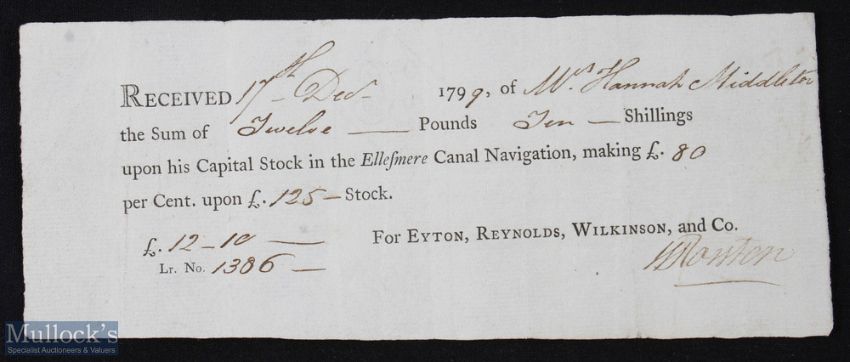 RECEIVED 17th Decr 1799, of Mrs Hannah Middleton
the Sum of Twelve — Pounds Ten — Shillings
upon his Capital Stock in the Elleſmere Canal Navigation, making £. 80
per Cent. upon £. 125 — Stock.
£. 12 - 10 —
For EYTON, REYNOLDS, WILKINSON, and Co.
Lr. No. 1386 —
Mullock's
Specialist Auctioneers & Valuers